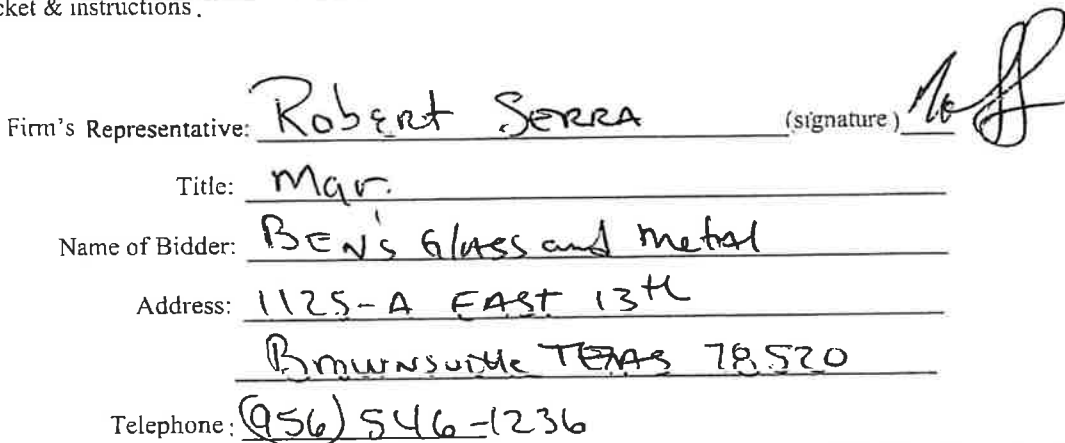 cket & instructions.
Firm's Representative: Robert SERRA (signature)
Title: Mgr.
Name of Bidder: BEN's Glass and Metal
Address: 1125-A EAST 13th
Brownsville TEXAS 78520
Telephone: (956) 546-1236